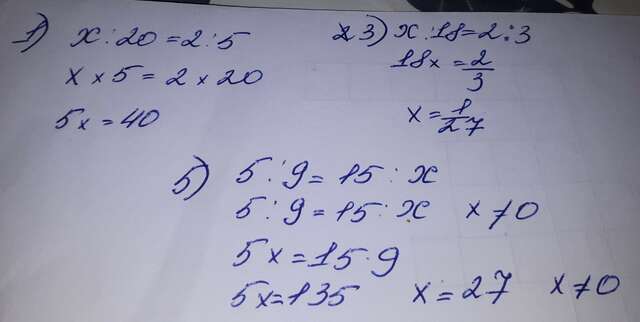 1) x : 20 = 2 : 5
x × 5 = 2 × 20
5x = 40
3) x : 18 = 2 : 3
18x = 2/3
x = 1/27
5) 5 : 9 = 15 : x
5 : 9 = 15 : x x ≠ 0
5x = 15 · 9
5x = 135 x = 27 x ≠ 0